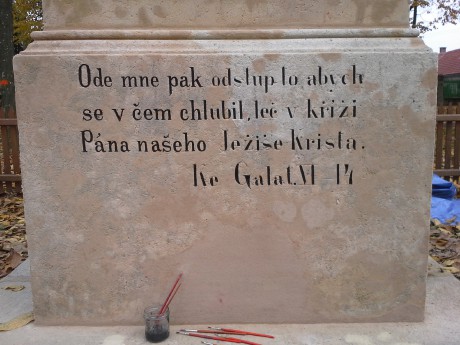 Ode mne pak odstup to, abych
se v čem chlubil, leč v kříži
Pána našeho Ježíše Krista.
Ke Galat. VI 14